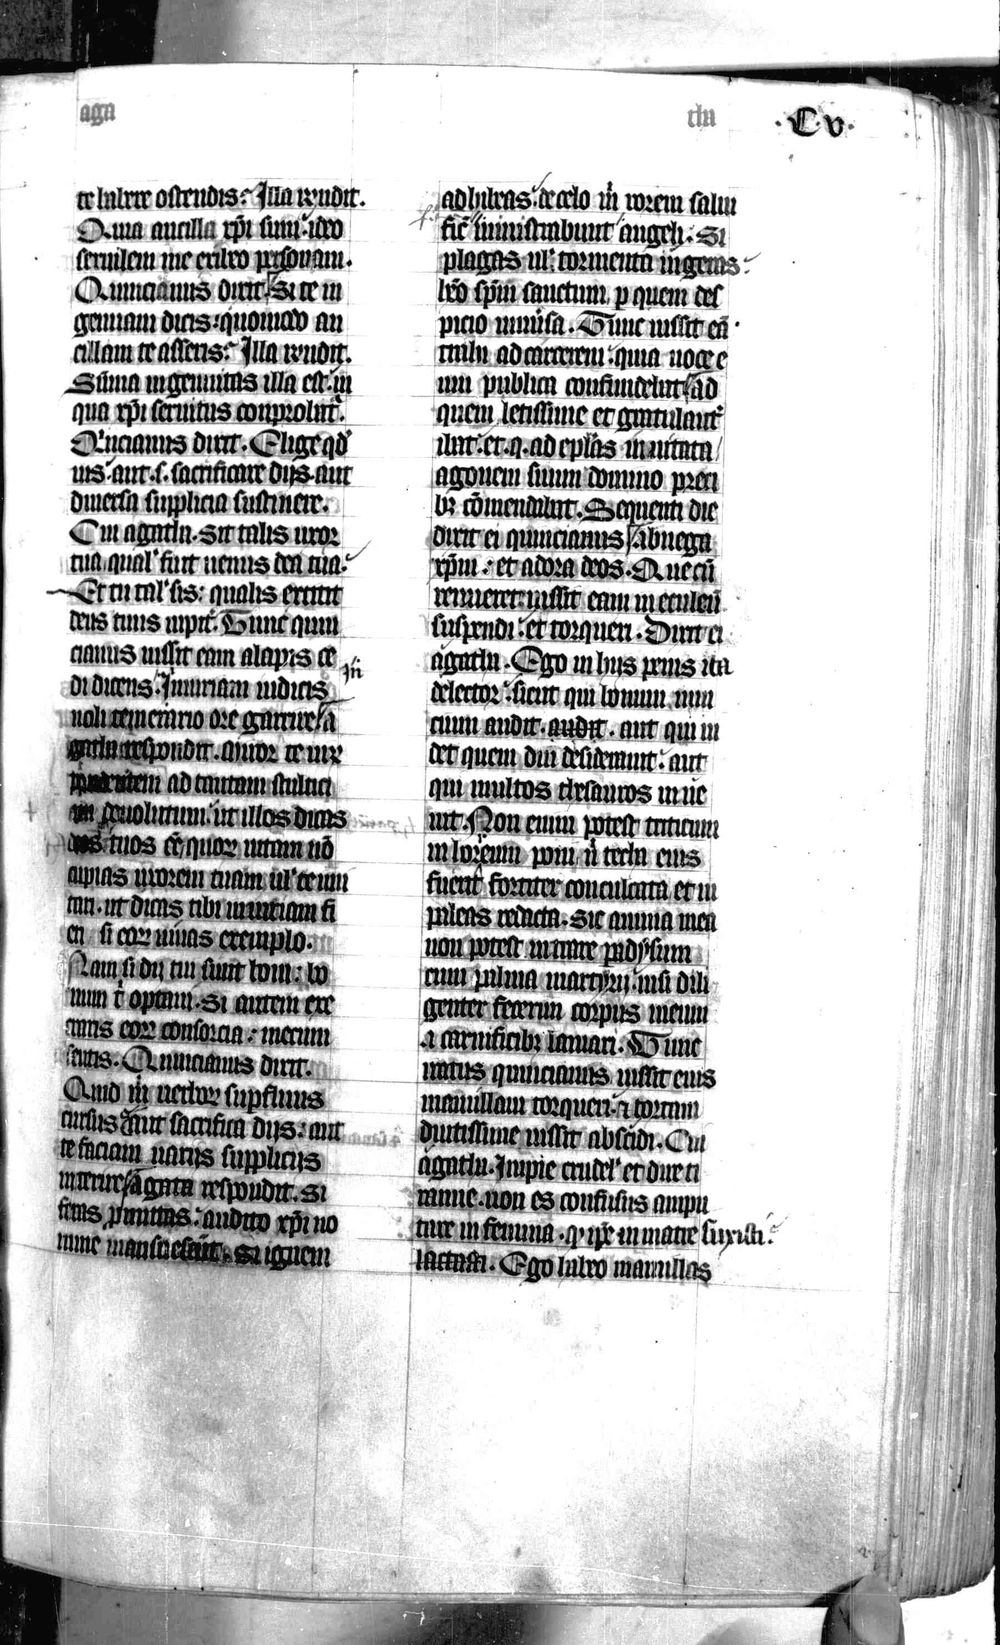 aga
tha
·C·v·
te habere ostendis. Illa rñdit.
Quia ancilla xp̄i sum. ideo
seruilem me exibeo personam.
Quincianus dixit. Si te in
genuam dicis: quomodo an
cillam te asseris. Illa rñdit.
Sūma ingenuitas illa est. in
qua xp̄i seruitus conprobat᷑.
Qͥncianus dixit. Elige qd̄
uis. aut .s. sacrificare dijs. aut
diuersa supplicia sustinere.
Cui agatha. Sit talis uxor
tua qual' fuit uenus dea tua.
Et tu tal' sis: qualis extitit
deus tuus iupit᷑. Tunc quin
cianus iussit eam alapis ce
di dicens. Iniuriam iudicis
noli temerario ore garrire. A
gatha respondit. Miror te uiꝝ
prudentem ad tantam stultici
am deuolutum. ut illos dicas
deos tuos eē, quoꝝ uitam nō
cupias uxorem tuam ul' te imi
tari. ut dicas tibi iniuriam fi
eri si eoꝝ uiuas exemplo.
Nam si dij tui sunt boni: bo
num t̄ optaui. Si autem exe
craris eoꝝ consorcia: mecum
sentis. Quincianus dixit.
Quid m̄ uerboꝝ supfluus
cursus aut sacrifica dijs: aut
te faciam uarijs supplicijs
interire. Agata respondit. Si
feras promittas: audito xp̄i no
mine mansuescūt. Si ignem
adhibeas. de celo m̄ rorem salui
ficū ministrabunt angeli. Si
plagas ul' tormenta ingeras.
heo sp̄m sanctum, p quem des
picio uniūsa. Tunc iussit eā
trahi ad carcerem: quia uoce e
ius publica confundebat᷑. ad
quem letissime et gratulant᷑
ibat. et .q. ad eplas inuitata
agonem suum domino preci
bꝫ cōmendabat. Sequenti die
dixit ei quincianus. Abnega
xp̄m: et adora deos. Que cū
rennueret: iussit eam in eculeū
suspendi: et torqueri. Dixit ei
agatha. Ego in hijs penis ita
delector: sicut qui bonum nun
cium audit. audit. aut qui ui
det quem diu desiderauit: aut
qui multos thesauros inue
nit. Non enim potest triticum
in horreum poni n̄ techa eius
fuerit fortiter conculcata et in
paleas redacta. Sic anima mea
non potest intrare padysum
cum palma martyrij: nisi dili
genter feceris corpus meum
a carnificibꝫ laniari. Tunc
iratus quincianus iussit eius
mamillam torqueri. ⁊ tortam
diutissime iussit abscidi. Cui
agatha. Impie crudel' et dire ti
ranne. non es confusus ampu
tare in femina. qͥ ipe in matre suxisti.
lactasti. Ego habeo mamillas